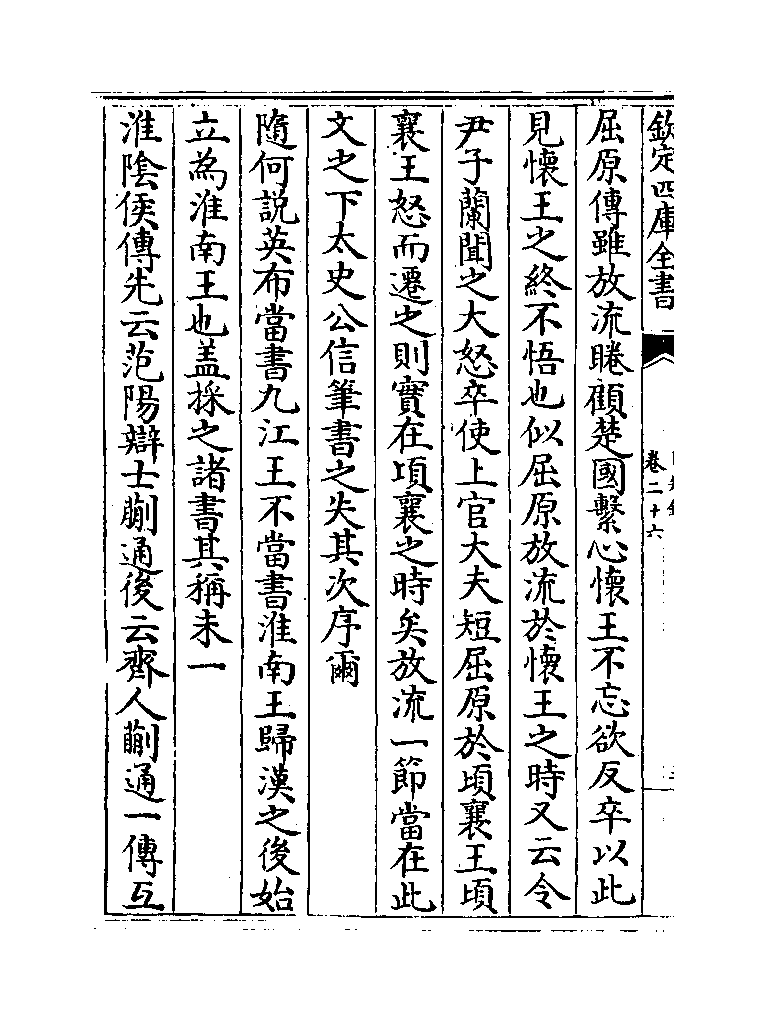 欽定四庫全書
卷二十六
屈原傳雖放流睠顧楚國繫心懷王不忘欲反卒以此
見懷王之終不悟也似屈原放流於懷王之時又云令
尹子蘭聞之大怒卒使上官大夫短屈原於頃襄王頃
襄王怒而遷之則實在項襄之時矣放流一節當在此
文之下太史公信筆書之失其次序爾
隨何説英布當書九江王不當書淮南王歸漢之後始
立為淮南王也盖採之諸書其稱未一
淮陰侯傳先云范陽辯士蒯通後云齊人蒯通一傳互